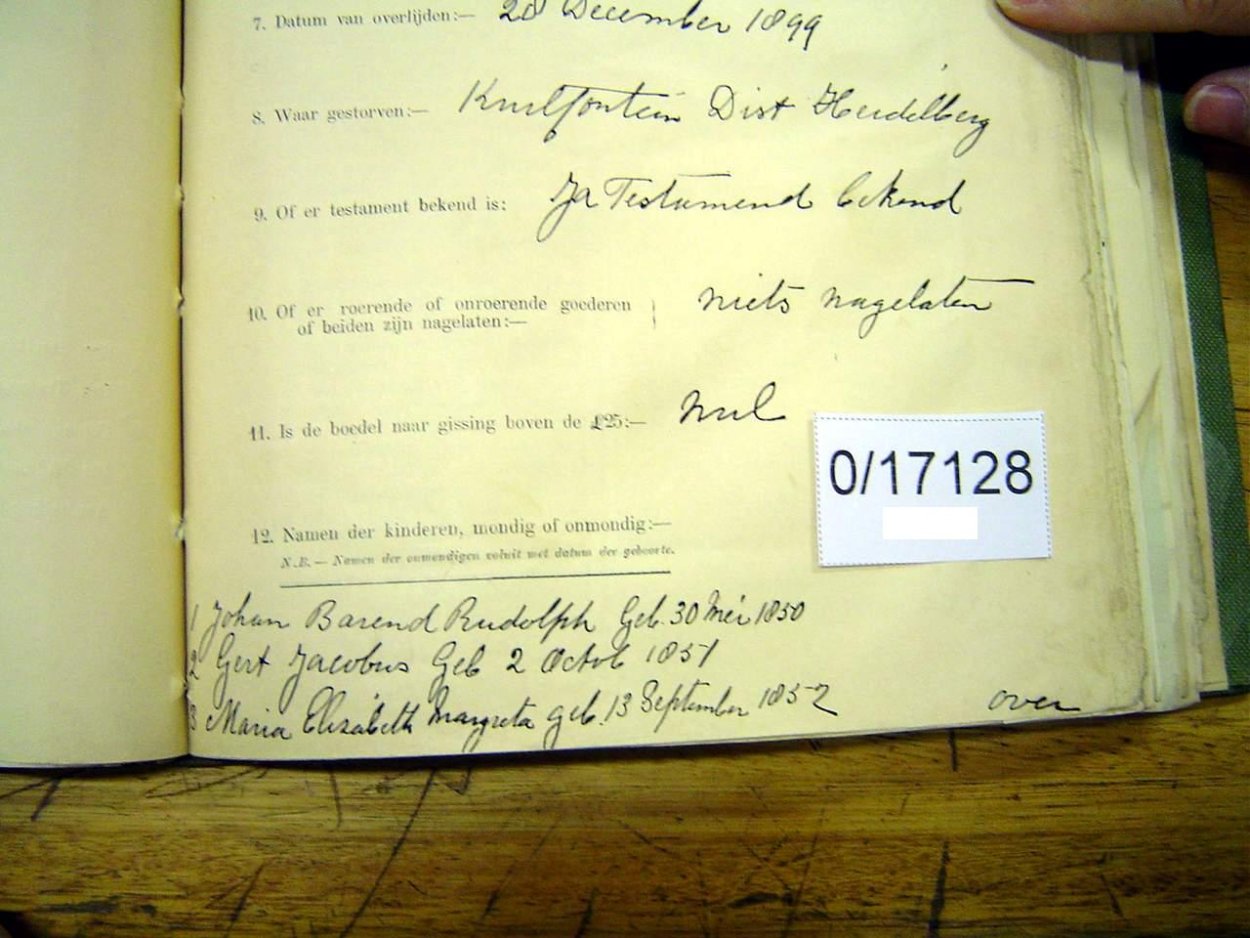 7. Datum van overlijden:— 28 December 1899
8. Waar gestorven:— Knilfontein Dist Heidelberg
9. Of er testament bekend is: Ja Testamend bekend
10. Of er roerende of onroerende goederen
of beiden zijn nagelaten:— niets nagelaten
11. Is de boedel naar gissing boven de £25:— nul
0/17128
12. Namen der kinderen, mondig of onmondig:—
N.B. — Namen der onmondigen voluit met datum der geboorte.
1 Johan Barend Rudolph Geb. 30 Mei 1850
2 Gert Jacobus Geb 2 Octob 1851
3 Maria Elizabeth Margreta geb. 13 September 1852
over